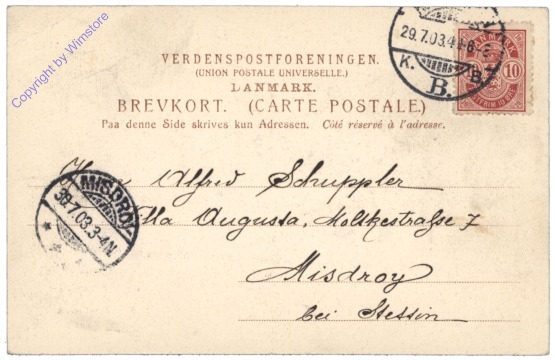 Copyright by Wimstore
29.7.03.4
K. B.
DANMARK
10
VERDENSPOSTFORENINGEN.
(UNION POSTALE UNIVERSELLE.)
DANMARK.
BREVKORT. (CARTE POSTALE.)
Paa denne Side skrives kun Adressen. Côté réservé à l'adresse.
MISDROY
30.7.03.3-4N
*
Herr Alfred Schuppler
Villa Augusta, Moltkestraße 7
Misdroy
bei Stettin